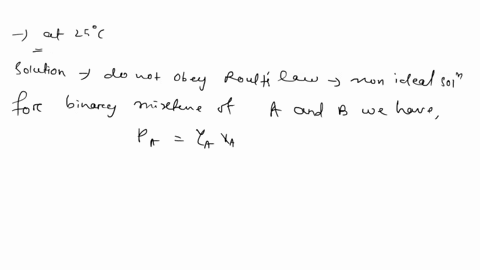 → at 25°C
Solution → do not obey Roult's law → non ideal solⁿ
for binary mixture of A and B we have,
P_A = γ_A X_A